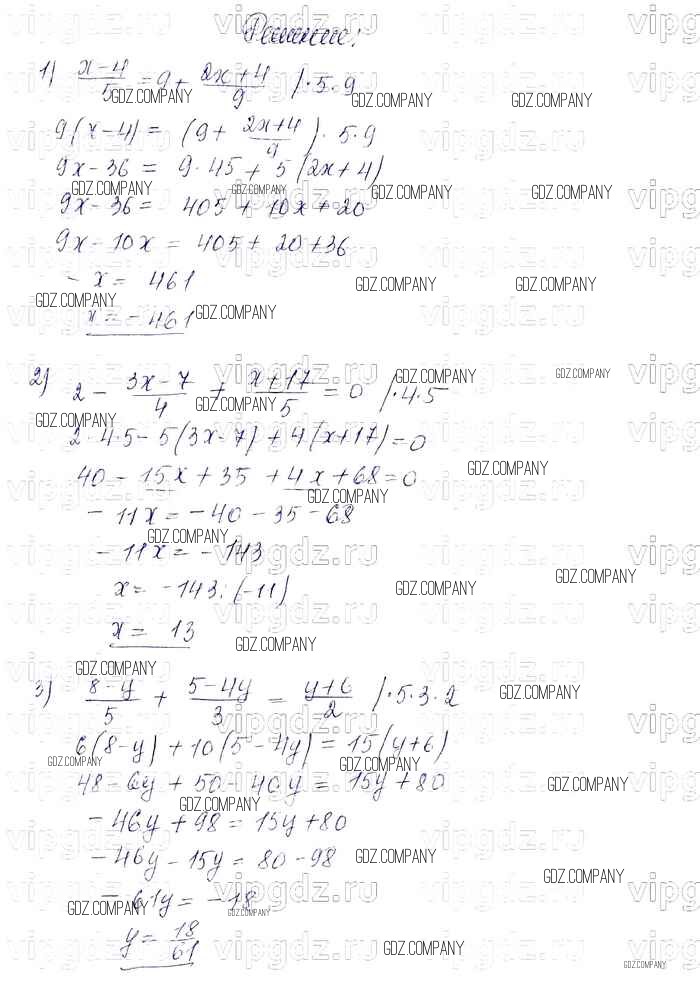 Решение:
1) (x-4)/5 = 9 + (2x+4)/9 /·5·9
9(x-4) = (9 + (2x+4)/9)·5·9
9x-36 = 9·45 + 5(2x+4)
9x-36 = 405 + 10x + 20
9x-10x = 405 + 20 + 36
-x = 461
x = -461
2) 2 - (3x-7)/4 + (x+17)/5 = 0 /·4·5
2·4·5 - 5(3x-7) + 4(x+17) = 0
40 - 15x + 35 + 4x + 68 = 0
-11x = -40 - 35 - 68
-11x = -143
x = -143 : (-11)
x = 13
3) (8-y)/5 + (5-4y)/3 = (y+6)/2 /·5·3·2
6(8-y) + 10(5-4y) = 15(y+6)
48 - 6y + 50 - 40y = 15y + 80
-46y + 98 = 15y + 80
-46y - 15y = 80 - 98
-61y = -18
y = 18/61
vipgdz.ru
GDZ.COMPANY